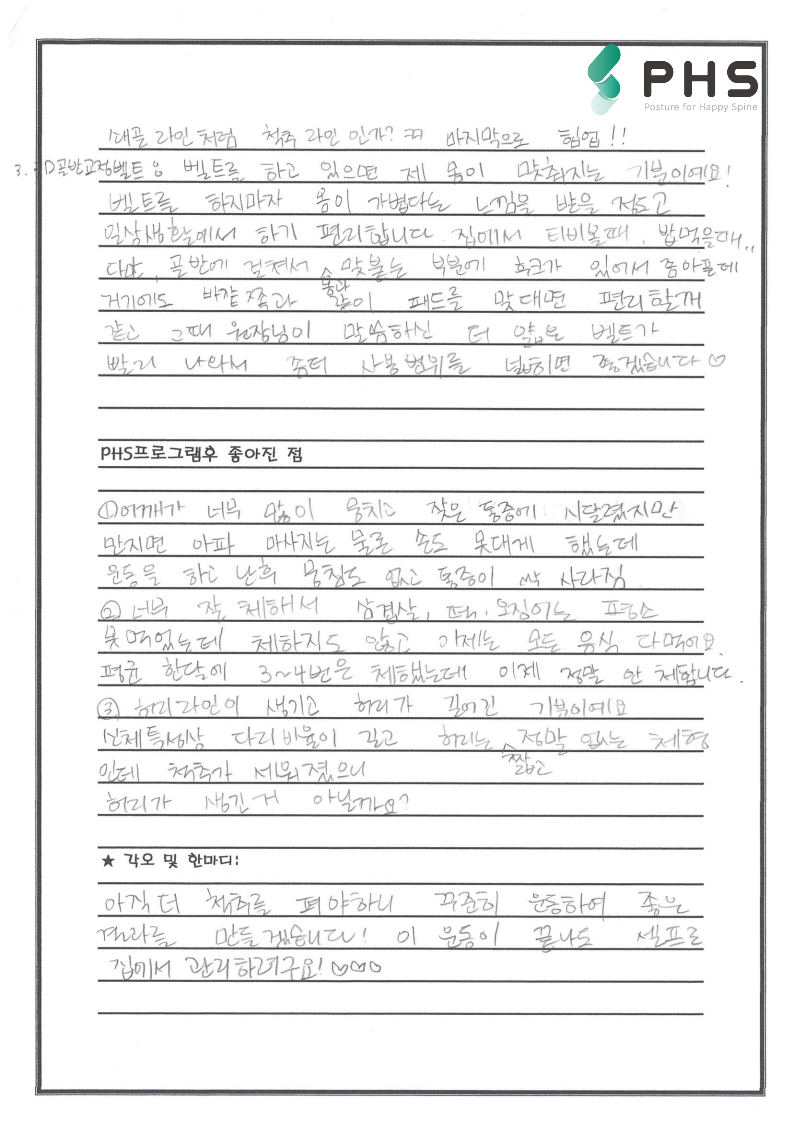 PHS
Posture for Happy Spine
쇄골 라인처럼 척추 라인 인가? ㅋㅋ 마지막으로 힙업!!
3. 3D골반교정벨트 : 벨트를 하고 있으면 제 몸이 맞춰지는 기분이예요!
벨트를 하자마자 몸이 가볍다는 느낌을 받을 정도고
일상생활에서 하기 편리합니다. 집에서 티비볼때, 밥먹을때..
다만, 골반에 걸쳐서 맞붙는 부분에 후크가 있어서 좀아플데
몸과
거기에도 바깥쪽과 같이 패드를 맞대면 편리할꺼
같고 그때 원장님이 말씀하신 더 얇은 벨트가
빨리 나와서 좀더 사용범위를 넓히면 좋겠습니다♡
PHS프로그램후 좋아진 점
①어깨가 너무 많이 뭉치고 잦은 통증에 시달렸지만
만지면 아파 마사지는 물론 손도 못대게 했는데
운동을 하고 난후 뭉침도 없고 통증이 싹 사라짐
② 너무 잘 체해서 삼겹살, 떡, 오징어는 평소
못먹었는데 체하지도 않고 이제는 모든 음식 다먹어요.
평균 한달에 3~4번은 체했는데 이제 정말 안 체합니다.
③ 허리라인이 생기고 허리가 길어진 기분이예요
신체특성상 다리비율이 길고 허리는 정말 없는 체형
짧고
인데 척추가 세워졌으니
허리가 생긴거 아닐까요?
★ 각오 및 한마디:
아직 더 척추를 펴야하니 꾸준히 운동하여 좋은
결과를 만들겠습니다! 이 운동이 끝나도 셀프로
집에서 관리하려구요!♡♡♡